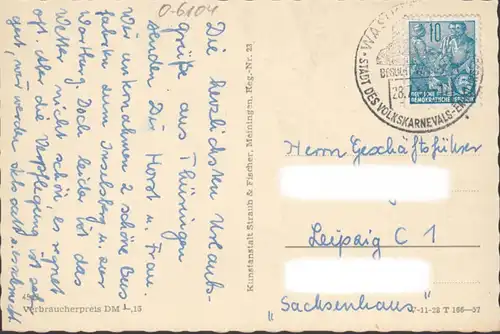 0-6104
Die herzlichsten Urlaubs-
grüße aus Thüringen
senden Dir Horst u. Frau.
Wir unternehmen 2 schöne Bus
fahrten zum Inselsberg u. zur
Wartburg. Doch leider ist das
Wetter nicht schön, es regnet
oft. Aber die Verpflegung ist sehr
gut, wir werden
Verbraucherpreis DM -,15
Kunstanstalt Straub & Fischer, Meiningen, Reg.-Nr. 23
WAS
BESUCHT
28.
STADT DES VOLKSKARNEVALS
10
DEUTSCHE
DEMOKRATISCHE REPUBLIK
Herrn Geschäftsführer
Leipzig C 1
"Sachsenhaus"
V-11-28 T 166—57